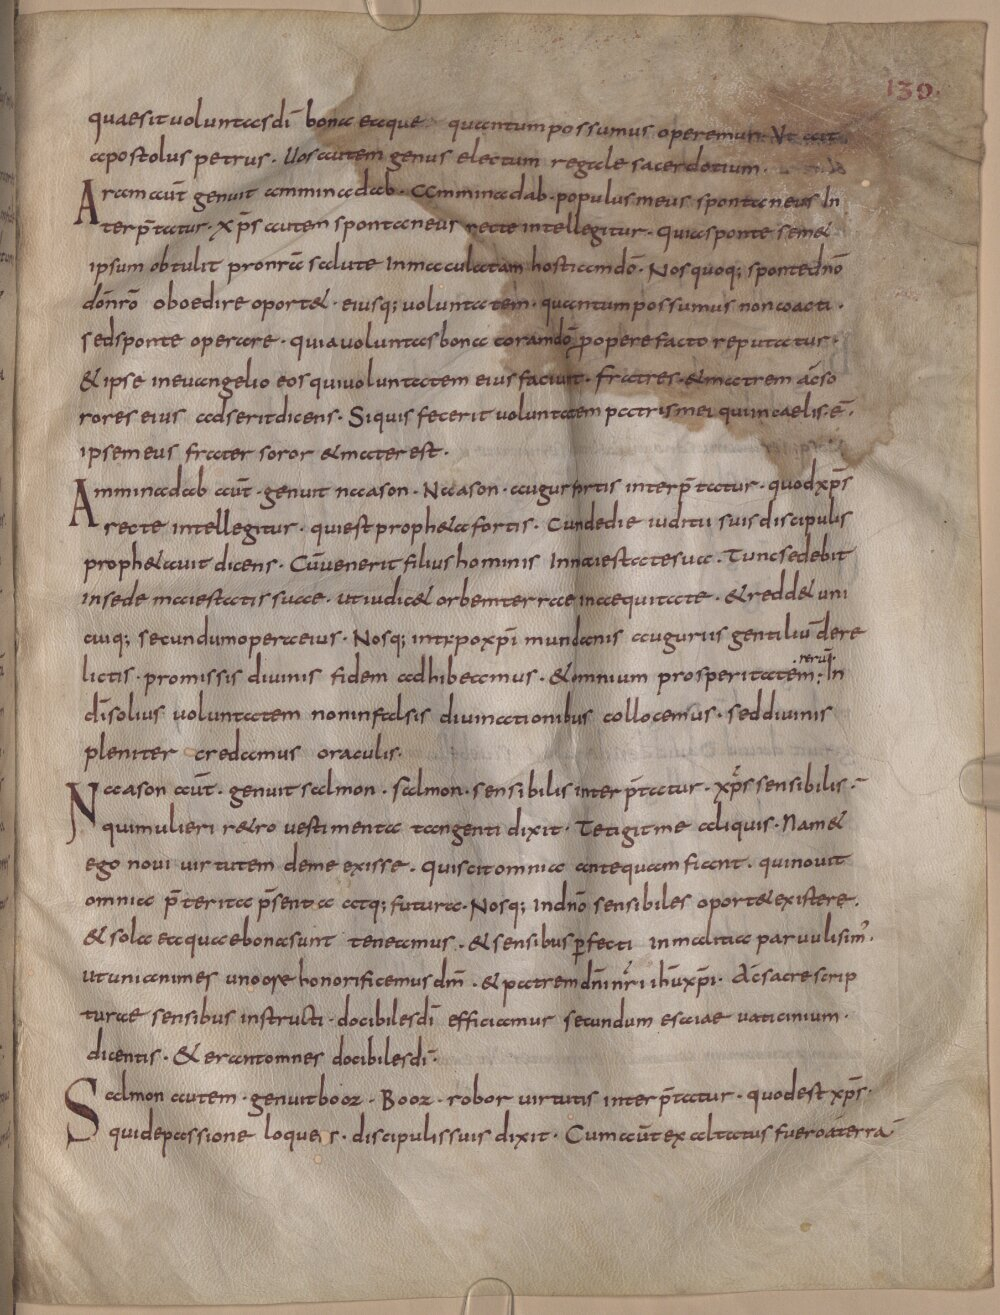 139.
quae sit voluntas dī bona eaque quantum possumus operemur. Ut ait
apostolus petrus. Uos autem genus electum regale sacerdotium.
Aram aūt genuit amminadab. Amminadab. populus meus spontaneus In
terp̄tatur. xp̄s autem spontaneus recte intellegitur. Quia sponte semet
ipsum obtulit pro nr̄a salute Inmaculatam hostiam dō. Nos quoq; sponte dn̄o
dō nr̄o oboedire oportet. eiusq; voluntatem. quantum possumus non coacti.
sed sponte operare. quia voluntas bona coram dō pro opere facto reputatur.
& ipse in evangelio eos qui voluntatem eius faciunt. fratres. & matrem ac so
rores eius adserit dicens. Siquis fecerit voluntatem patris mei qui in caelis ē.
ipse meus frater soror & mater est.
Amminadab aūt. genuit naason. Naason. augur fortis interp̄tatur. quod xp̄s
recte intellegitur. qui est propheta fortis. Cun de die iuditii suis discipulis
prophetauit dicens. Cū venerit filius hominis In maiestate sua. Tunc sedebit
in sede maiestatis suae. ut iudicet orbem terrae in aequitate. & reddet uni
cuiq; secundum opera eius. Nosq; in xpo xp̄i mundanis auguriis gentiliū dere
lictis. promissis divinis fidem adhibeamus. & omnium prosperitatem rerū. In
dī solius voluntatem non in falsis divinationibus collocemus. sed divinis
pleniter credamus oraculis.
Naason aūt. genuit salmon. salmon. sensibilis interp̄tatur. xp̄s sensibilis.
qui mulieri retro vestimenta tangenti dixit. Tetigit me aliquis. Nam et
ego novi virtutem de me exisse. Qui scit omnia antequam fiant. qui novit
omnia p̄terita p̄senta atq; futura. Nosq; In dn̄o sensibiles oportet existere.
& sola ea quae bona sunt teneamus. & sensibus perfecti in malitia parvuli sim'.
ut unianimes uno ore honorificemus dm̄. & patrem dn̄i nr̄i ihū xp̄i. Ac sacre scrip
turae sensibus instructi. docibiles dī efficiamur secundum esaiae vaticinium.
dicentis. & erant omnes docibiles dī.
Salmon autem. genuit booz. Booz. robor virtutis interp̄tatur. quod est xp̄s.
qui de passione loquens. discipulis suis dixit. Cum aūt exaltatus fuero a terra